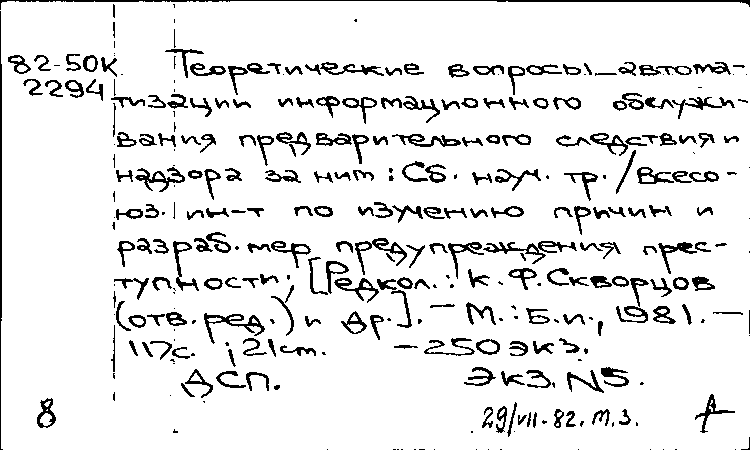 82-50К Теоретические вопросы автома-
2294 тизации информационного обслужи-
вания предварительного следствия и
надзора за ним: Сб. науч. тр. / Всесо-
юз. ин-т по изучению причин и
разраб. мер предупреждения прес-
тупности; [Редкол.: К. Ф. Скворцов
(отв. ред.) и др.]. - М.: Б.и., 1981. -
117с. ; 21см. - 250 экз.
ДСП. Экз. N5.
8 29/VII-82. М.З.